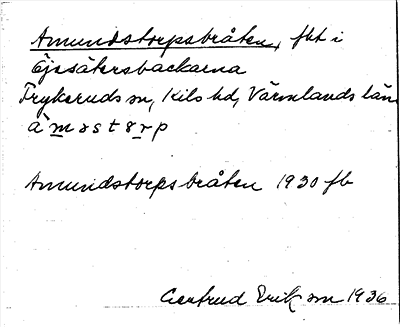 Amundstorpsbråten, fht i
Öjesätersbackarna
Frykeruds sn, Kils hd, Värmlands län
à m ɔ s t ɤ r p
Amundstorpsbråten 1930 fb
Gertrud Erikson 1936